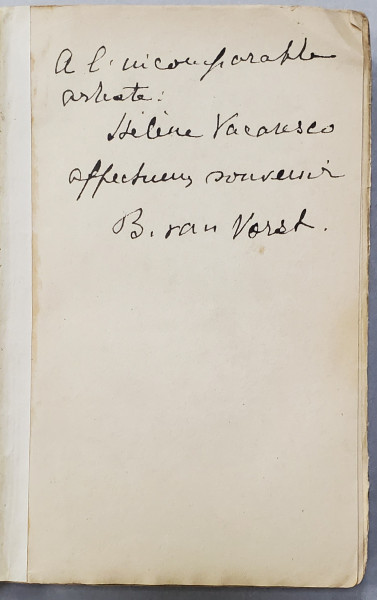 A l'incomparable
artiste:
Hélène Vacaresco
affectueux souvenir
B. van Vorst.